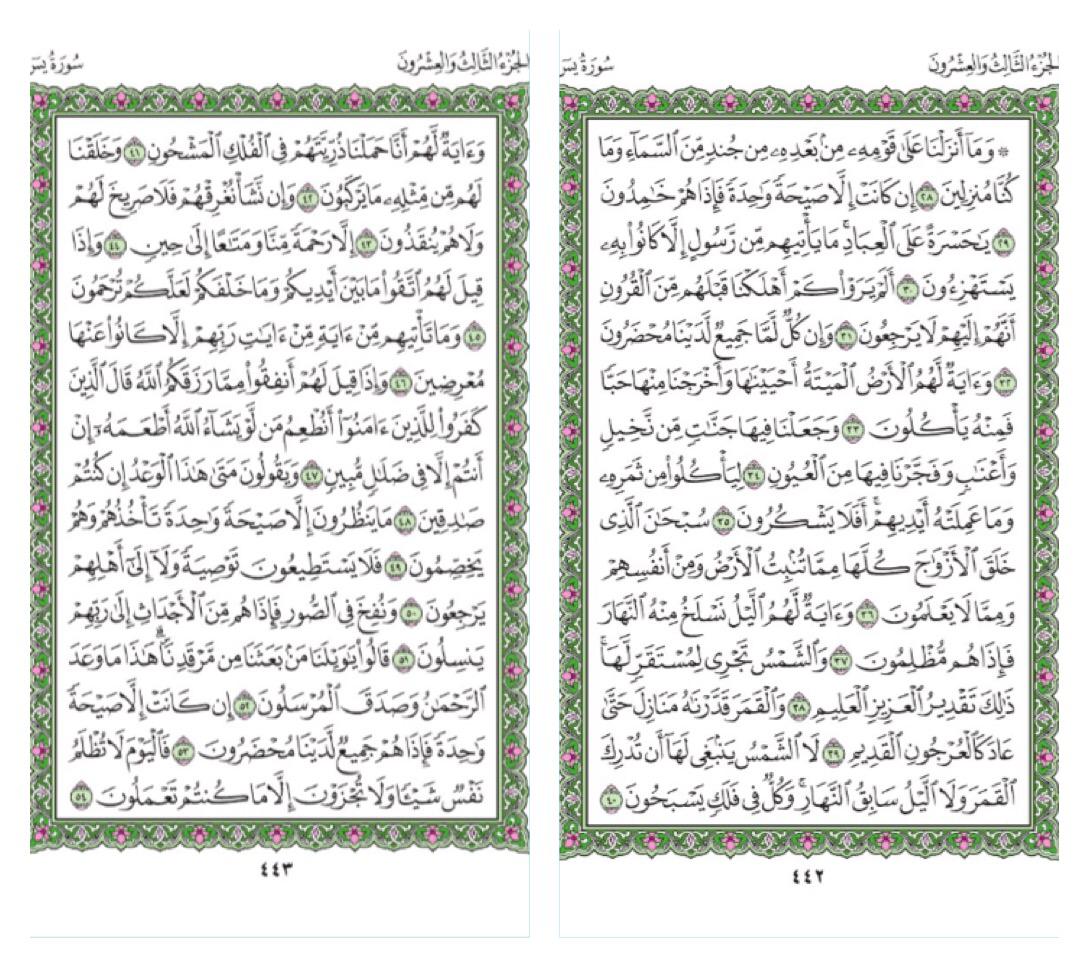 الجُزْءُ الثَّالِثُ وَالعِشْرُونَ سُورَةُ يسٓ
۞ وَمَآ أَنزَلْنَا عَلَىٰ قَوْمِهِۦ مِنۢ بَعْدِهِۦ مِن جُندٍ مِّنَ ٱلسَّمَآءِ وَمَا
كُنَّا مُنزِلِينَ ٢٨ إِن كَانَتْ إِلَّا صَيْحَةً وَٰحِدَةً فَإِذَا هُمْ خَٰمِدُونَ
٢٩ يَٰحَسْرَةً عَلَى ٱلْعِبَادِۚ مَا يَأْتِيهِم مِّن رَّسُولٍ إِلَّا كَانُوا۟ بِهِۦ
يَسْتَهْزِءُونَ ٣٠ أَلَمْ يَرَوْا۟ كَمْ أَهْلَكْنَا قَبْلَهُم مِّنَ ٱلْقُرُونِ
أَنَّهُمْ إِلَيْهِمْ لَا يَرْجِعُونَ ٣١ وَإِن كُلٌّ لَّمَّا جَمِيعٌ لَّدَيْنَا مُحْضَرُونَ
٣٢ وَءَايَةٌ لَّهُمُ ٱلْأَرْضُ ٱلْمَيْتَةُ أَحْيَيْنَٰهَا وَأَخْرَجْنَا مِنْهَا حَبًّا
فَمِنْهُ يَأْكُلُونَ ٣٣ وَجَعَلْنَا فِيهَا جَنَّٰتٍ مِّن نَّخِيلٍ
وَأَعْنَٰبٍ وَفَجَّرْنَا فِيهَا مِنَ ٱلْعُيُونِ ٣٤ لِيَأْكُلُوا۟ مِن ثَمَرِهِۦ
وَمَا عَمِلَتْهُ أَيْدِيهِمْۚ أَفَلَا يَشْكُرُونَ ٣٥ سُبْحَٰنَ ٱلَّذِى
خَلَقَ ٱلْأَزْوَٰجَ كُلَّهَا مِمَّا تُنۢبِتُ ٱلْأَرْضُ وَمِنْ أَنفُسِهِمْ
وَمِمَّا لَا يَعْلَمُونَ ٣٦ وَءَايَةٌ لَّهُمُ ٱلَّيْلُ نَسْلَخُ مِنْهُ ٱلنَّهَارَ
فَإِذَا هُم مُّظْلِمُونَ ٣٧ وَٱلشَّمْسُ تَجْرِى لِمُسْتَقَرٍّ لَّهَاۚ
ذَٰلِكَ تَقْدِيرُ ٱلْعَزِيزِ ٱلْعَلِيمِ ٣٨ وَٱلْقَمَرَ قَدَّرْنَٰهُ مَنَازِلَ حَتَّىٰ
عَادَ كَٱلْعُرْجُونِ ٱلْقَدِيمِ ٣٩ لَا ٱلشَّمْسُ يَنۢبَغِى لَهَآ أَن تُدْرِكَ
ٱلْقَمَرَ وَلَا ٱلَّيْلُ سَابِقُ ٱلنَّهَارِۚ وَكُلٌّ فِى فَلَكٍ يَسْبَحُونَ ٤٠
٤٤٢
الجُزْءُ الثَّالِثُ وَالعِشْرُونَ سُورَةُ يسٓ
وَءَايَةٌ لَّهُمْ أَنَّا حَمَلْنَا ذُرِّيَّتَهُمْ فِى ٱلْفُلْكِ ٱلْمَشْحُونِ ٤١ وَخَلَقْنَا
لَهُم مِّن مِّثْلِهِۦ مَا يَرْكَبُونَ ٤٢ وَإِن نَّشَأْ نُغْرِقْهُمْ فَلَا صَرِيخَ لَهُمْ
وَلَا هُمْ يُنقَذُونَ ٤٣ إِلَّا رَحْمَةً مِّنَّا وَمَتَٰعًا إِلَىٰ حِينٍ ٤٤ وَإِذَا
قِيلَ لَهُمُ ٱتَّقُوا۟ مَا بَيْنَ أَيْدِيكُمْ وَمَا خَلْفَكُمْ لَعَلَّكُمْ تُرْحَمُونَ
٤٥ وَمَا تَأْتِيهِم مِّنْ ءَايَةٍ مِّنْ ءَايَٰتِ رَبِّهِمْ إِلَّا كَانُوا۟ عَنْهَا
مُعْرِضِينَ ٤٦ وَإِذَا قِيلَ لَهُمْ أَنفِقُوا۟ مِمَّا رَزَقَكُمُ ٱللَّهُ قَالَ ٱلَّذِينَ
كَفَرُوا۟ لِلَّذِينَ ءَامَنُوٓا۟ أَنُطْعِمُ مَن لَّوْ يَشَآءُ ٱللَّهُ أَطْعَمَهُۥٓ إِنْ
أَنتُمْ إِلَّا فِى ضَلَٰلٍ مُّبِينٍ ٤٧ وَيَقُولُونَ مَتَىٰ هَٰذَا ٱلْوَعْدُ إِن كُنتُمْ
صَٰدِقِينَ ٤٨ مَا يَنظُرُونَ إِلَّا صَيْحَةً وَٰحِدَةً تَأْخُذُهُمْ وَهُمْ
يَخِصِّمُونَ ٤٩ فَلَا يَسْتَطِيعُونَ تَوْصِيَةً وَلَآ إِلَىٰٓ أَهْلِهِمْ
يَرْجِعُونَ ٥٠ وَنُفِخَ فِى ٱلصُّورِ فَإِذَا هُم مِّنَ ٱلْأَجْدَاثِ إِلَىٰ رَبِّهِمْ
يَنسِلُونَ ٥١ قَالُوا۟ يَٰوَيْلَنَا مَنۢ بَعَثَنَا مِن مَّرْقَدِنَاۜۗ هَٰذَا مَا وَعَدَ
ٱلرَّحْمَٰنُ وَصَدَقَ ٱلْمُرْسَلُونَ ٥٢ إِن كَانَتْ إِلَّا صَيْحَةً
وَٰحِدَةً فَإِذَا هُمْ جَمِيعٌ لَّدَيْنَا مُحْضَرُونَ ٥٣ فَٱلْيَوْمَ لَا تُظْلَمُ
نَفْسٌ شَيْـًٔا وَلَا تُجْزَوْنَ إِلَّا مَا كُنتُمْ تَعْمَلُونَ ٥٤
٤٤٣